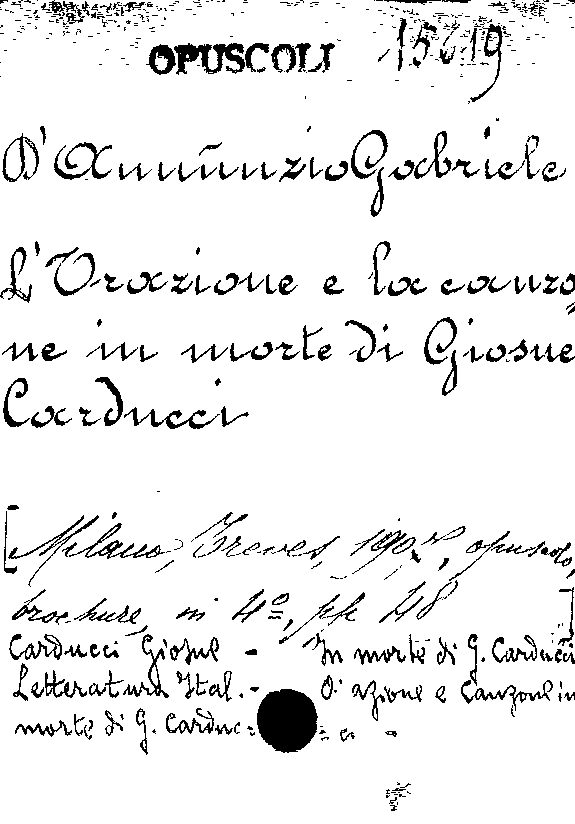 OPUSCOLI 15619
D'Annunzio Gabriele
L'Orazione e la canzo
ne in morte di Giosue
Carducci
[Milano, Treves, 1907, opuscolo,
brochure, in 4º, pp. 48]
Carducci Giosue - In morte di G. Carducci
Letteratura Ital. - Orazione e Canzone in
morte di G. Carduc=